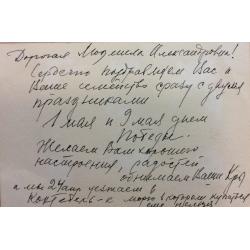 Дорогая Людмила Александровна!
Сердечно поздравляем Вас и
Ваше семейство сразу с двумя
праздниками
1 мая и 9 мая днем
Победы.
Желаем Вам хорошего
настроения, радостей
обнимаем Ваши
а мы 24 апр уезжаем в
Коктебель - к морю в котором купаться
еще нельзя!